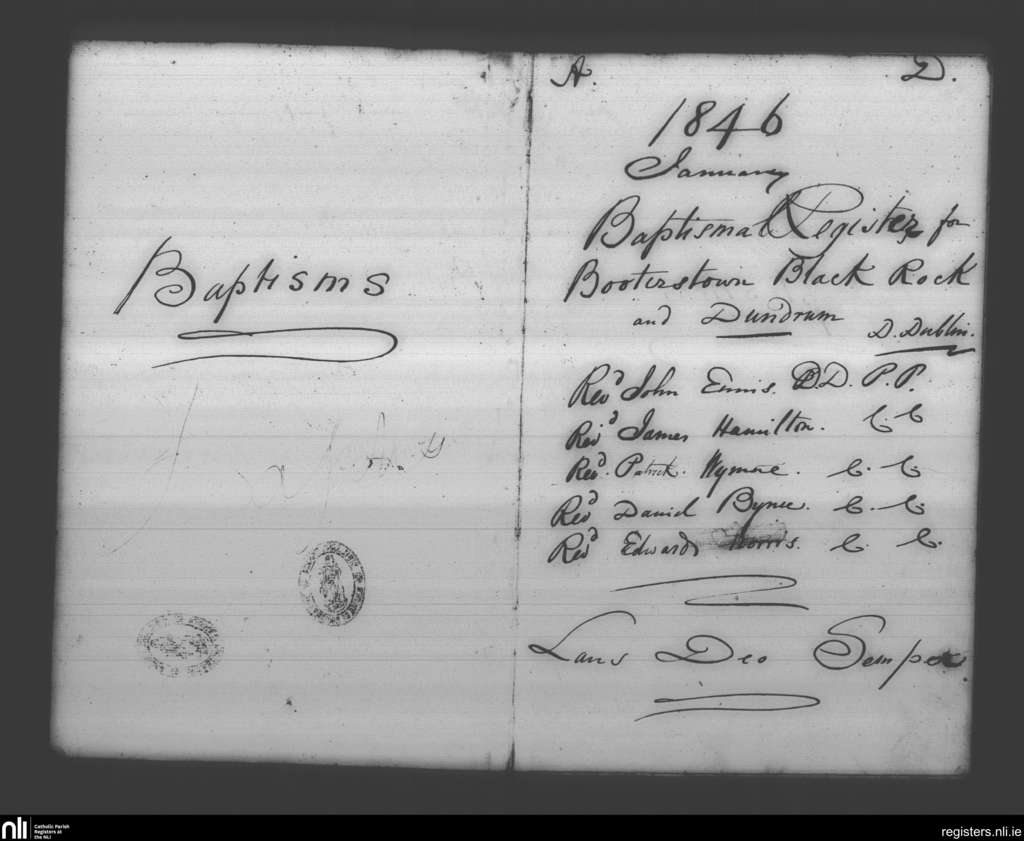 Baptisms
A. D.
1846
January
Baptismal Register for
Booterstown Black Rock
and Dundrum
D. Dublin.
Revd John Ennis. DD. P.P.
Revd James Hamilton. C. C
Revd. Patrick. Wymore. C. C.
Revd Daniel Byrne. C. C.
Revd Edward Norris. C. C.
Laus Deo Semper.
nli Catholic Parish
Registers at
the NLI
registers.nli.ie